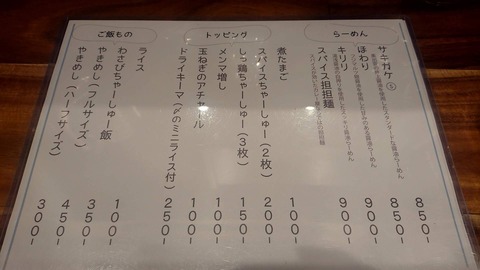 らーめん
サキガケ
850-
ほわり
850-
キリリ
900-
スパイス担担麺
900-
トッピング
煮たまご
100-
スパイスちゃーしゅー(2枚)
200-
しっ鶏ちゃーしゅー(3枚)
150-
メンマ増し
100-
玉ねぎのアチャール
100-
ドライキーマ(〆のミニライス付)
250-
ご飯もの
ライス
100-
わさびちゃーしゅー飯
350-
やきめし(フルサイズ)
450-
やきめし(ハーフサイズ)
300-